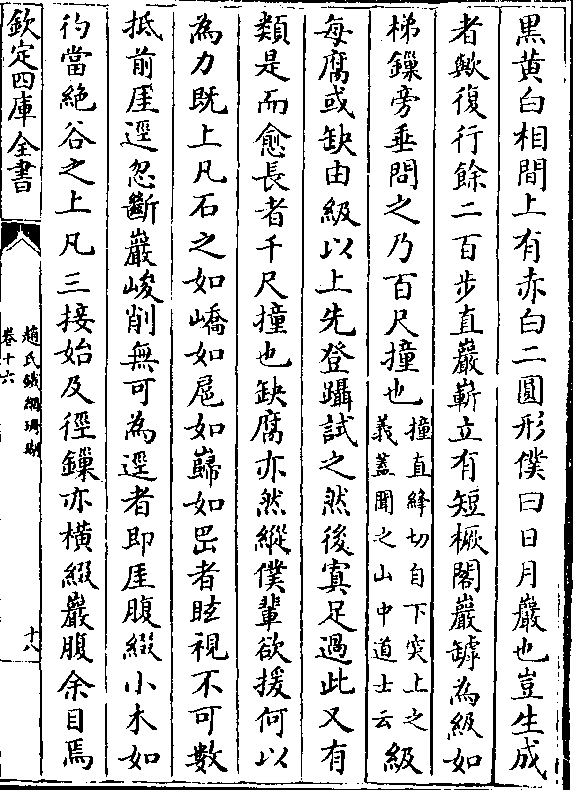 黒黄白相間上有赤白二圓形僕曰日月巖也豈生成
者歟復行餘二百步直巖嶄立有短橛閣巖罅為級如
梯鏁旁垂問之乃百尺撞也撞直絳切自下突上之義蓋聞之山中道士云級
每腐或缺由級以上先登躡試之然後寘足過此又有
類是而愈長者千尺撞也缺腐亦然縱僕輩欲援何以
為力既上凡石之如嶠如扈如巋如岊者眩視不可數
抵前厓逕忽斷巖峻削無可為逕者即厓腹綴小木如
彴當絶谷之上凡三接始及徑鏁亦橫綴巖腹余目焉
欽定四庫全書
趙氏鐵網珊瑚
卷十六
十八